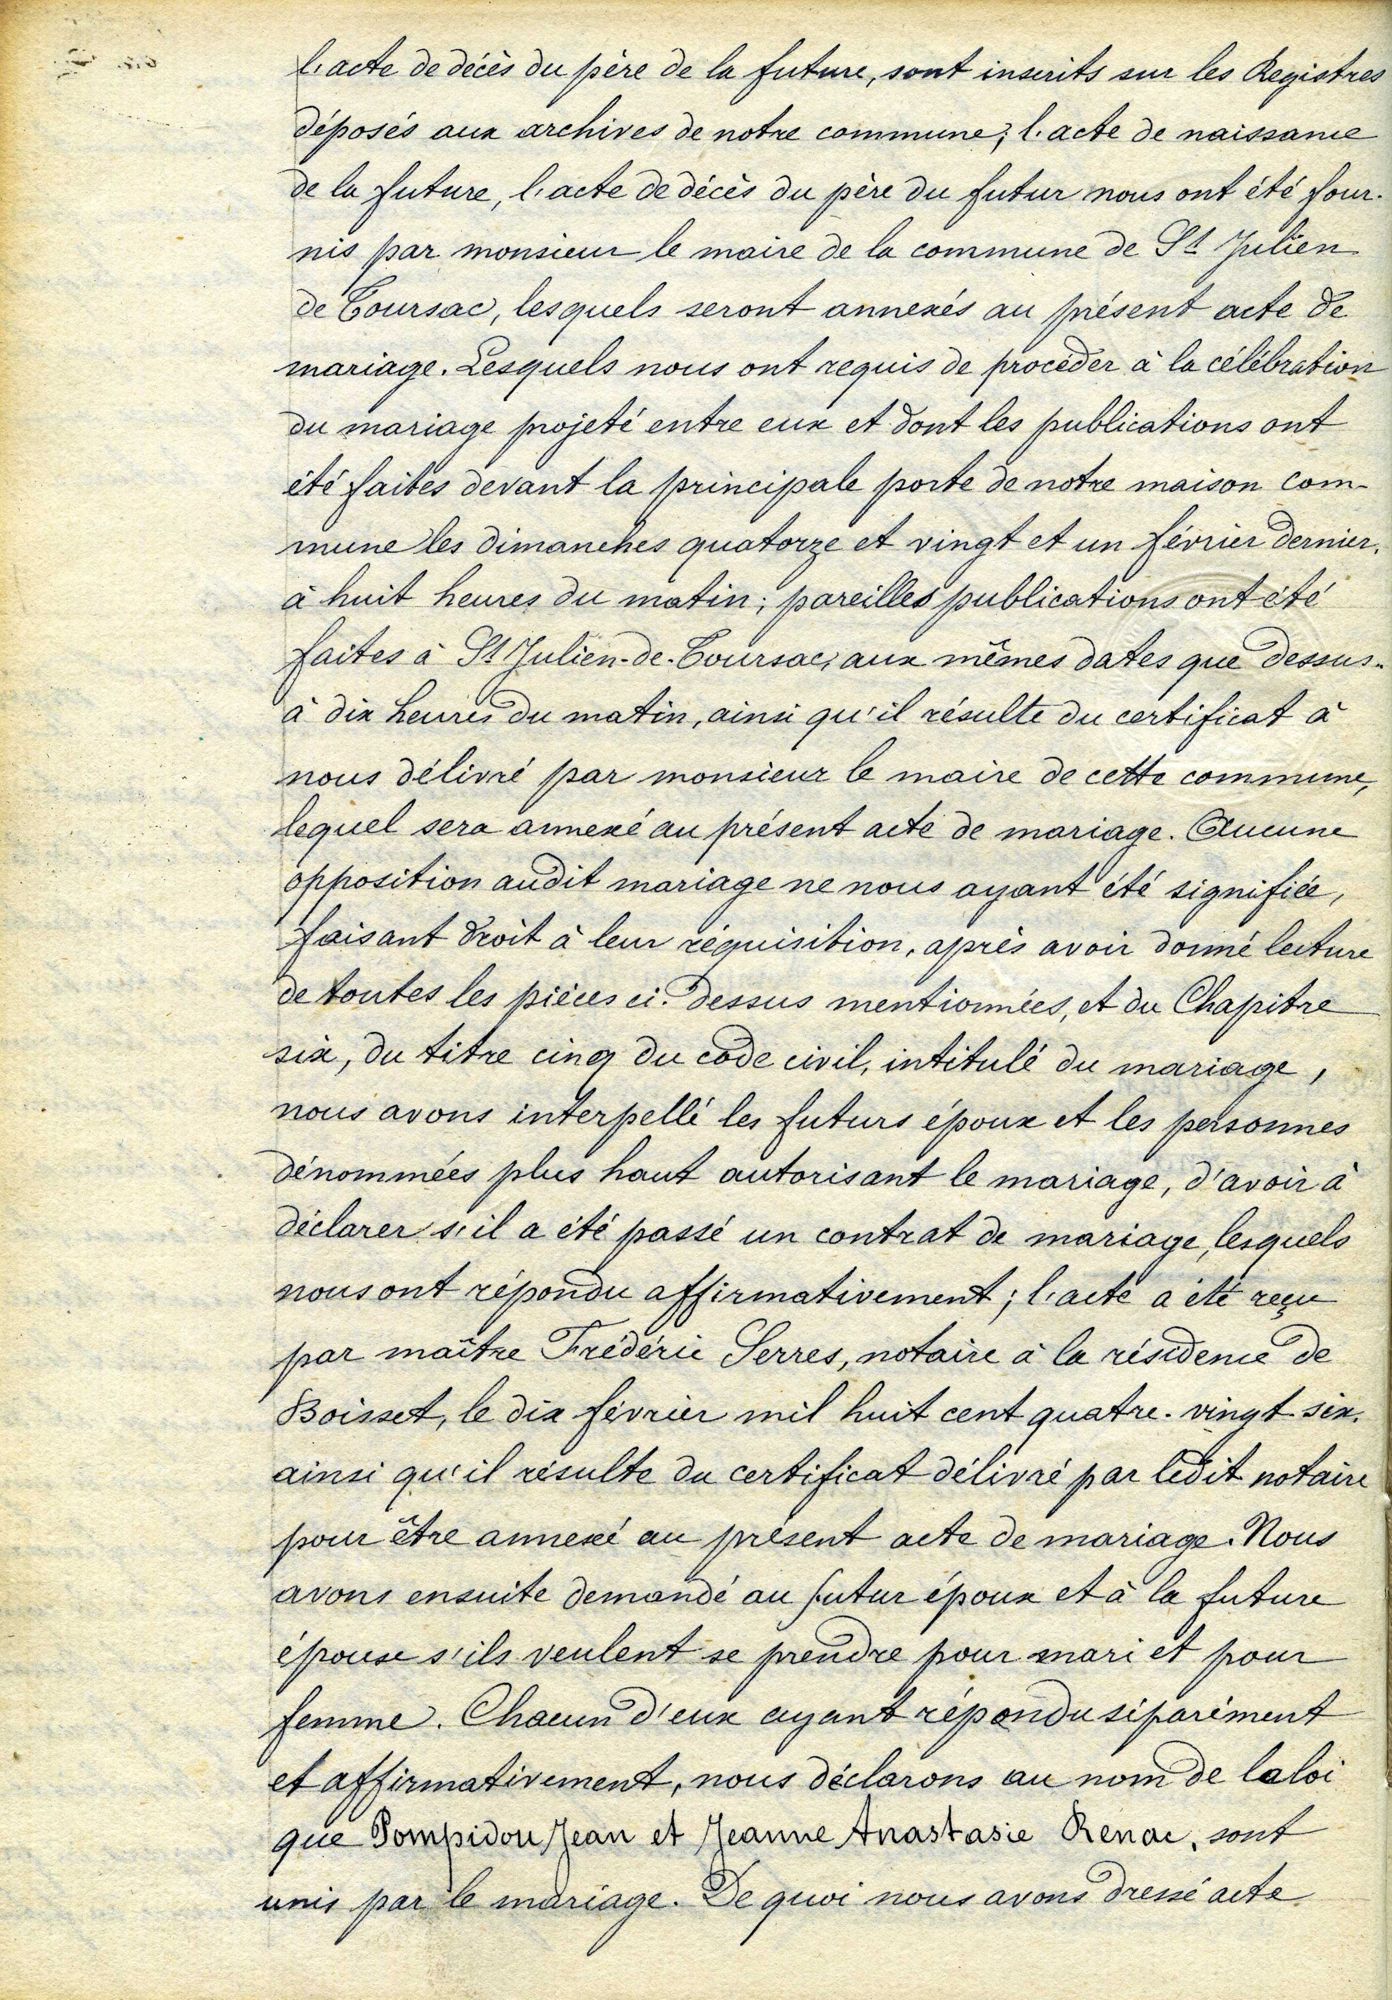 l'acte de décès du père de la future, sont inscrits sur les Registres
déposés aux archives de notre commune; l'acte de naissance
de la future, l'acte de décès du père du futur nous ont été four-
nis par monsieur le maire de la commune de St Julien
de Toursac, lesquels seront annexés au présent acte de
mariage. Lesquels nous ont requis de procéder à la célébration
du mariage projeté entre eux et dont les publications ont
été faites devant la principale porte de notre maison com-
mune les dimanches quatorze et vingt et un février dernier,
à huit heures du matin; pareilles publications ont été
faites à St Julien-de-Toursac, aux mêmes dates que dessus-
à dix heures du matin, ainsi qu'il résulte du certificat à
nous délivré par monsieur le maire de cette commune,
lequel sera annexé au présent acte de mariage. Aucune
opposition audit mariage ne nous ayant été signifiée,
faisant droit à leur réquisition, après avoir donné lecture
de toutes les pièces ci-dessus mentionnées, et du Chapitre
six, du titre cinq du code civil, intitulé du mariage,
nous avons interpellé les futurs époux et les personnes
dénommées plus haut autorisant le mariage, d'avoir à
déclarer s'il a été passé un contrat de mariage, lesquels
nous ont répondu affirmativement; l'acte a été reçu
par maître Frédéric Serres, notaire à la résidence de
Boisset, le dix février mil huit cent quatre-vingt six,
ainsi qu'il résulte du certificat délivré par ledit notaire
pour être annexé au présent acte de mariage. Nous
avons ensuite demandé au futur époux et à la future
épouse s'ils veulent se prendre pour mari et pour
femme. Chacun d'eux ayant répondu séparément
et affirmativement, nous déclarons au nom de la loi
que Pompidou Jean et Jeanne Anastasie Renac, sont
unis par le mariage. De quoi nous avons dressé acte